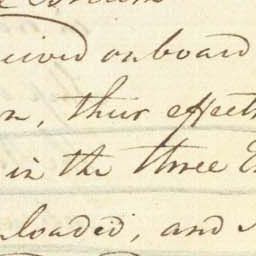 eived onboard
n, their effect
in the three
loaded, and